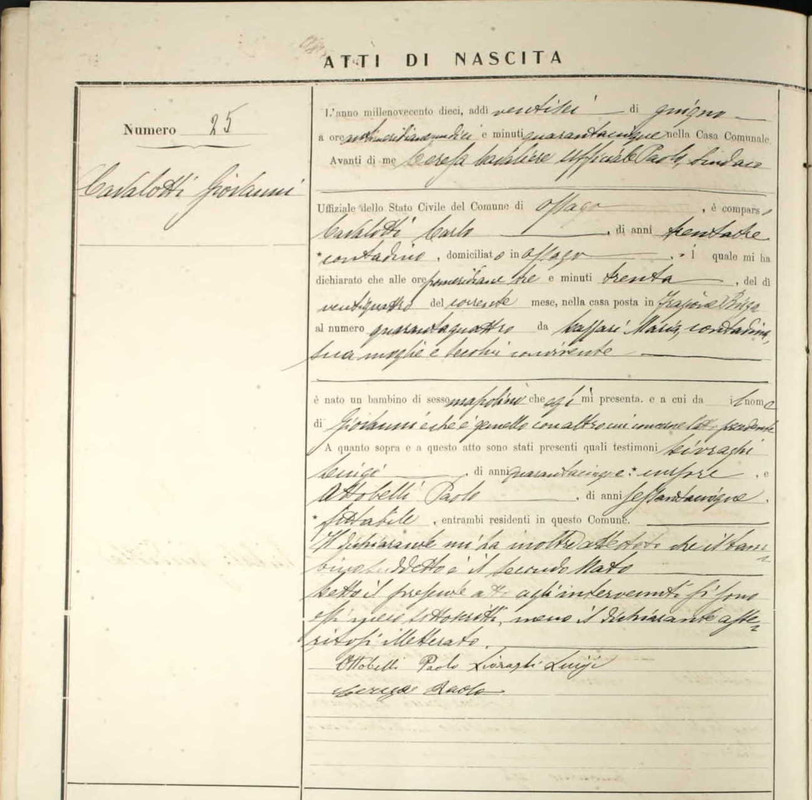 ATTI DI NASCITA
Numero 25
Cavalotti Giovanni
L'anno millenovecento dieci, addì ventisei di giugno
a ore antimeridiane dieci e minuti quarantacinque nella Casa Comunale
Avanti di me Ceresa Cavaliere Ufficiale Paolo, Sindaco
Uffiziale dello Stato Civile del Comune di Ossago, è comparso
Cavalotti Carlo, di anni trentatre
contadino, domiciliato in Ossago, il quale mi ha
dichiarato che alle ore pomeridiane tre e minuti trenta, del dì
ventiquattro del corrente mese, nella casa posta in Frazione
al numero quarantaquattro da Maria, contadina,
sua moglie e seco lui convivente
è nato un bambino di sesso mascolino che egli mi presenta, e a cui da il nome
di Giovanni e che è gemello con altro cui concerne l'atto precedente
A quanto sopra e a questo atto sono stati presenti quali testimoni Livraghi
Luigi, di anni quarantacinque, e
Ottobelli Paolo, di anni sessantacinque,
fittabile, entrambi residenti in questo Comune.
Il dichiarante mi ha inoltre attestato che il bam=
bino suddetto è il secondo Nato
Letto il presente atto agli intervenuti si sono
essi meco sottoscritti, meno il dichiarante asse=
ritosi illetterato.
Ottobelli Paolo Livraghi Luigi
Ceresa Paolo